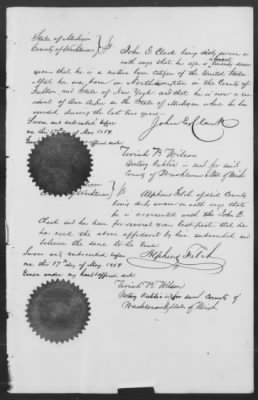 State of Michigan
County of Washtenaw } ss John E. Clark being duly sworn on
oath says that his age is twenty seven
years that he is a native born citizen of the United States
that he was born in Northampton in the County of
Fulton and State of New York and that he is now a res
ident of Ann Arbor in the State of Michigan where he has
resided during the last year
Sworn and subscribed before John E Clark
me this May 1859
and official seal
Uriah B Wilson
Notary Public in and for said
County of Washtenaw & State of Mich
State of Michigan
County of Washtenaw } ss Alpheus Felch of said County
being duly sworn on oath says that
he is acquainted with the John E
Clark and has been for several years last past that he
has read the above affidavit by him subscribed and
believes the same to be true
Sworn and subscribed before Alpheus Felch
me this 17th day of May 1859
Given under my hand & official seal
Uriah B. Wilson
Notary Public in & for said County of
Washtenaw & State of Mich